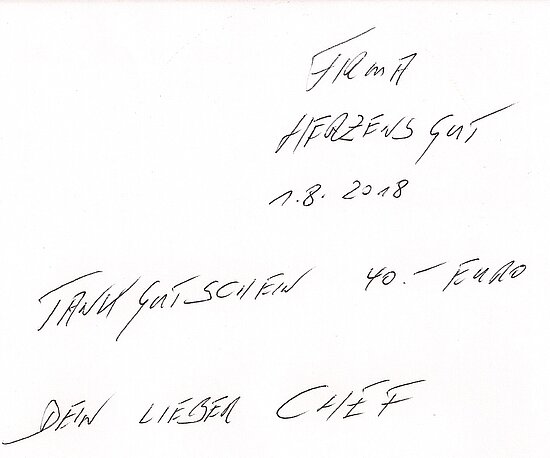 FIRMA
HERZENS GUT
1.8. 2018
TANKGUTSCHEIN 40.– EURO
DEIN LIEBER CHEF